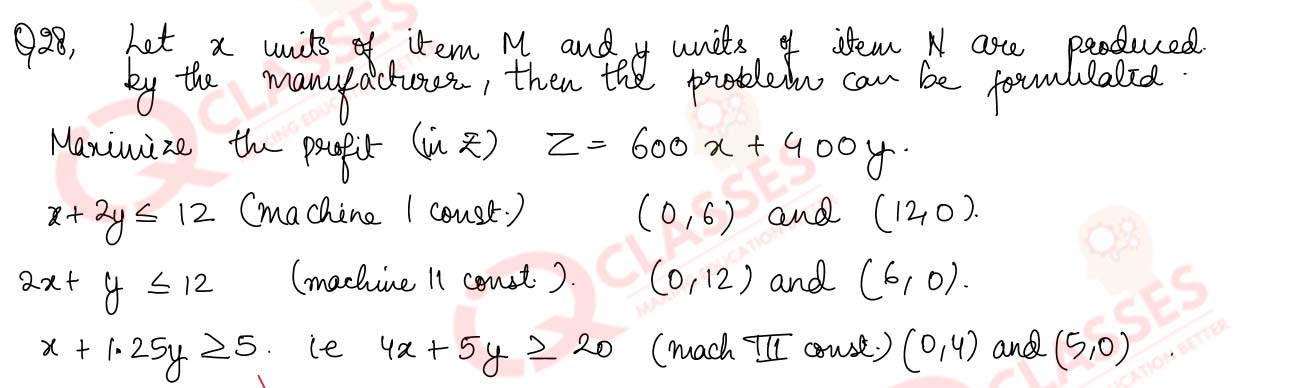 Q28, Let x units of item M and y units of item N are produced.
by the manufacturer, then the problem can be formulated.
Maximize the profit (in ₹) Z = 600x + 400y.
x + 2y ≤ 12 (machine I const.) (0,6) and (12,0).
2x + y ≤ 12 (machine II const.). (0,12) and (6,0).
x + 1.25y ≥ 5. ie 4x + 5y ≥ 20 (mach III const.) (0,4) and (5,0).
CLASSES
CLASSES
MAKING EDUCATION BETTER
CLASSES